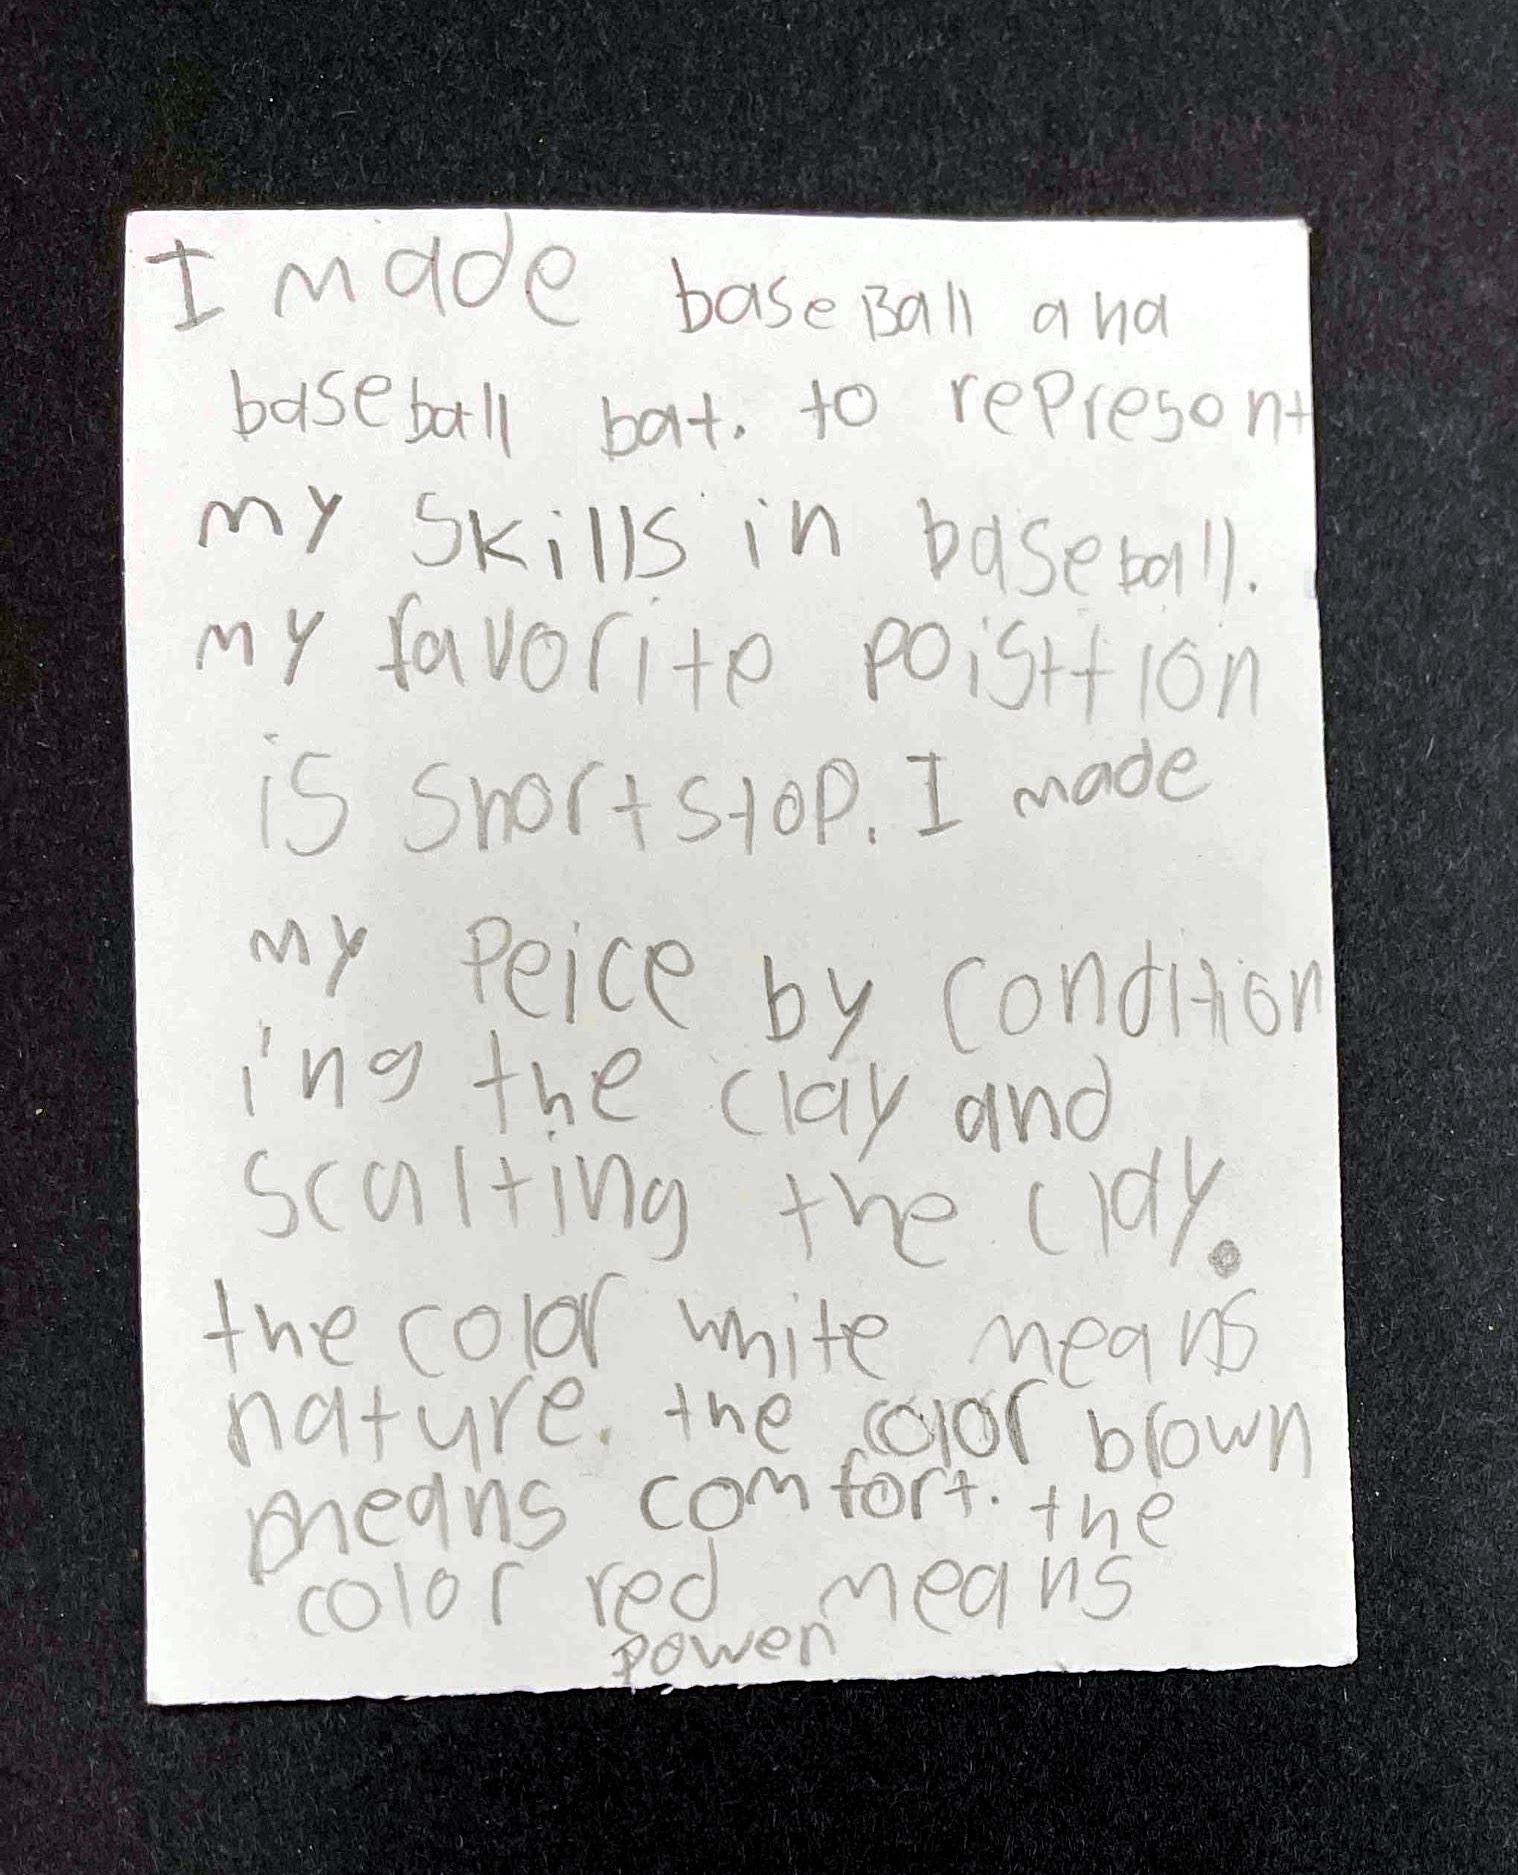 I made baseBall and
baseball bat. to represont
my skills in baseball.
my favorite poisttion
is shortstop. I made
my Peice by condition
ing the clay and
scalting the clay.
the color white means
nature. the color brown
means comfort. the
color red means
power